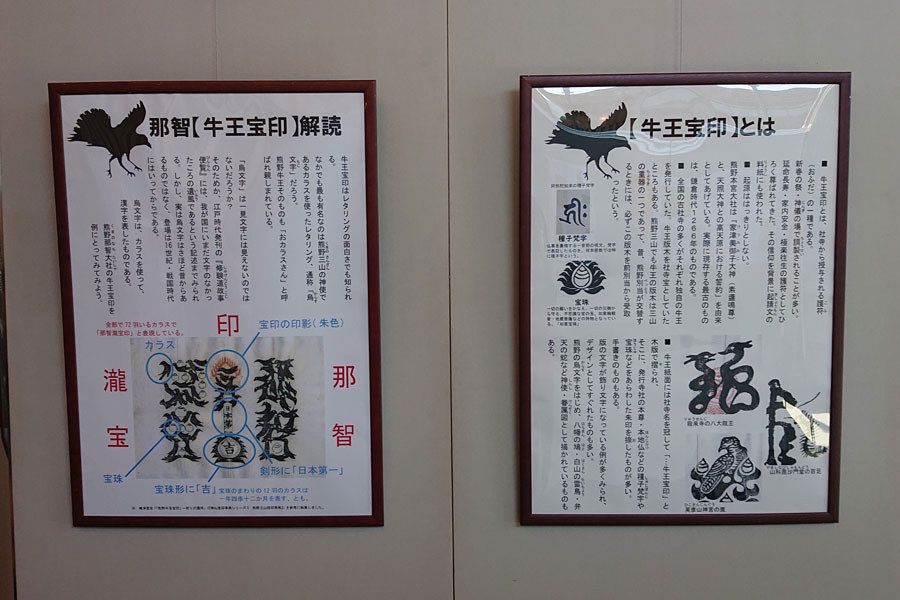 那智【牛王宝印】解読
牛王宝印はレタリングの面白さでも知られる。
なかでも最も有名なのは熊野三山の神使で
あるカラスを使ったレタリング、通称「烏
文字」だろう。
熊野牛王そのものも「おカラスさん」と呼
ばれ親しまれている。
「烏文字」は一見文字には見えないのでは
ないだろうか？
そのためか、江戸時代発刊の『修験道故事
便覧』には、我が国にいまだ文字のなかっ
たころの遺風であるという記述までみられ
る。しかし、実は烏文字はさほど昔からあ
るものではなく、登場は16世紀・戦国時代
にはいってからである。
烏文字は、カラスを使って、
漢字を表したものである。
熊野那智大社の牛王宝印を
例にとってみてみよう。
全部で72羽いるカラスで
「那智瀧宝印」と表現している。
カラス
印
宝印の印影(朱色)
那
智
瀧
宝
宝珠
剣形に「日本第一」
宝珠形に「吉」
宝珠のまわりの12羽のカラスは
一年四季十二か月を表す、とも。
【牛王宝印】とは
■ 牛王宝印とは、社寺から授与される護符
（おふだ）の一種である。
新春の祭・神儀の場で調製されることが多い。
延命長寿・家内安全・極楽往生の護符としてひ
ろく尊ばれてきた。その信仰を背景に起請文の
料紙にも使われた。
■ 起源ははっきりとしない。
熊野本宮大社は「家津美御子大神（素盞鳴尊）
と、天照大神との高天原における誓約」を由来
としてあげている。実際に現存する最古のもの
は、鎌倉時代1266年のものである。
■ 全国の古社寺の多くがそれぞれ独自の牛王
を発行していた。牛王版木を社寺宝としていた
ところもある。熊野三山でも牛王の版木は三山
の重器の一つであって、昔、熊野別当が交替す
るときには、必ずこの版木を前別当から受取
ったという。
種子梵字
宝珠
■ 牛王紙面には社寺名を冠して「…牛王宝印」と
木版で摺られ、
そこに、発行寺社の本尊・本地仏などの種子梵字や
宝珠などをあらわした朱印を捺したものが多い。
手書きのものもある。
版の文字が飾り文字になっている例が多くみられ、
デザインとしてすぐれたものも多い。
熊野の烏文字をはじめ、八幡の鳩・白山の霊鳥・弁
天の蛇など神使・眷属図として描かれているものも
ある。
龍泉寺の八大龍王
山科毘沙門堂の百足
英彦山神宮の鷹